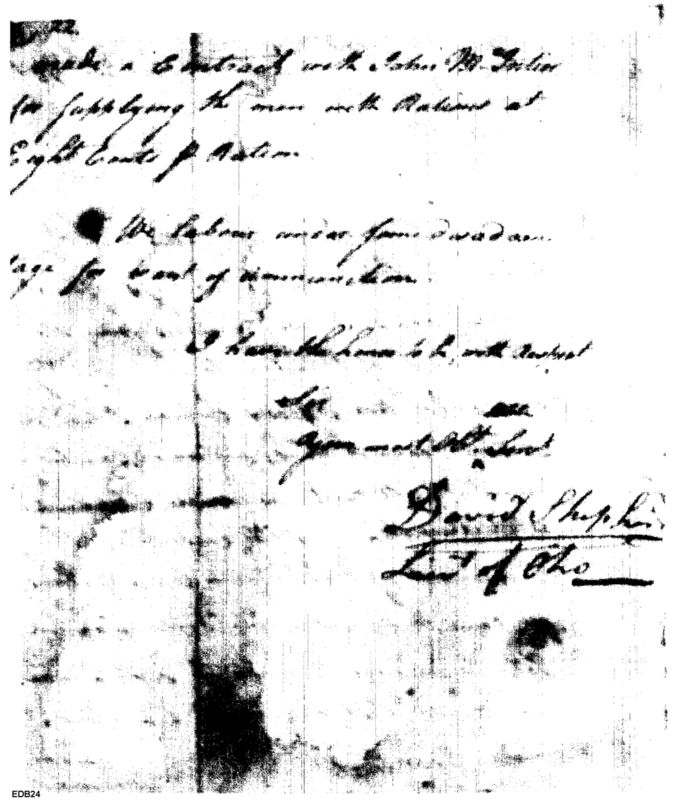 made a Contract with John McFortier
for Supplying the men with Rations at
Eight Cents p Ration
We labour under some disadvan
tage for want of ammunition
I have the honor to be with Respect
Sir
your most Obt. Servt
David Shephe
Lieut of Oho
EDB24